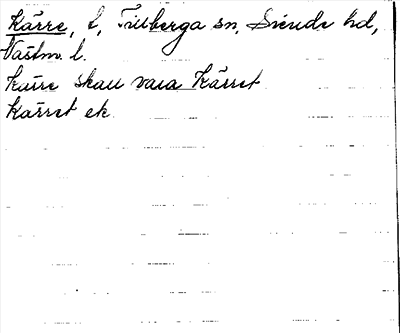 Kärre, t, Tillberga sn, Siende hd,
Västm. l.
Kärre skall vara Kärret
Kärret ek.